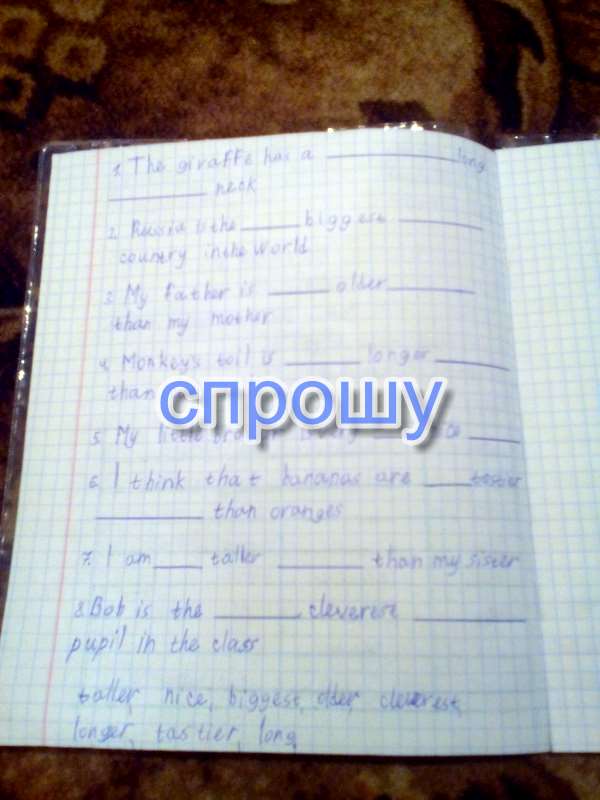 1. The giraffe has a ______ long
______ neck
2. Russia is the ______ biggest ______
country in the world
3. My father is ______ older ______
than my mother
4. Monkey's tail is ______ longer ______
than
спрошу
5. My little
6. I think that bananas are ____ tastier
______ than oranges
7. I am ____ taller ______ than my sister
8. Bob is the ______ cleverest ______
pupil in the class
taller, nice, biggest, older, cleverest,
longer, tastier, long